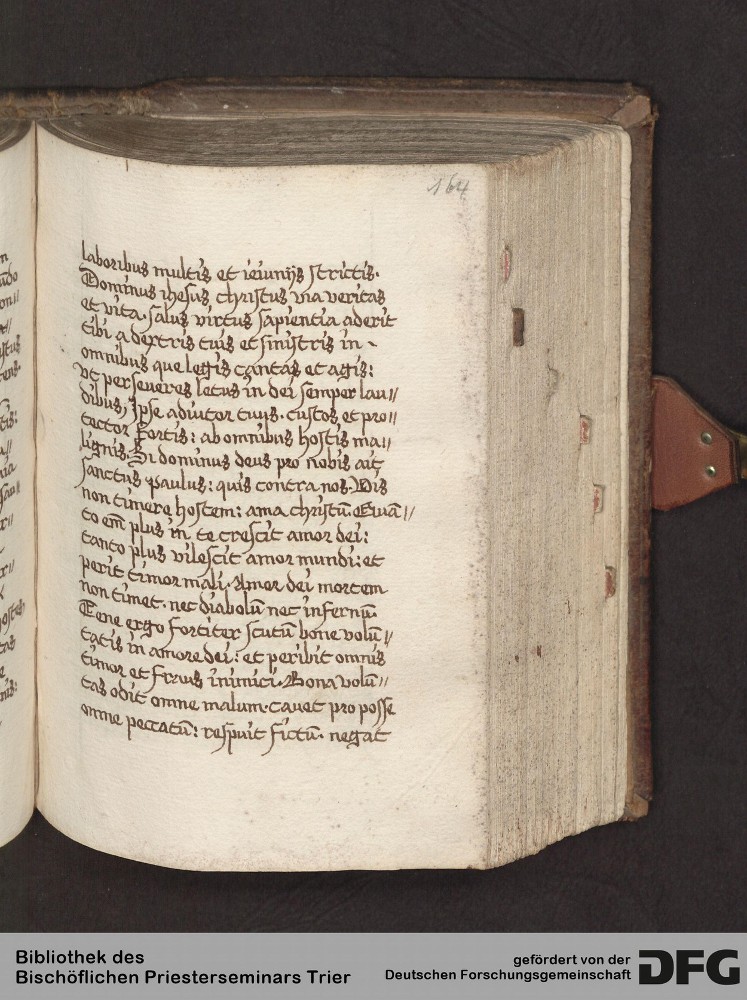 164
laboribus multis et ieiunijs strictis.
Dominus ihesus christus via veritas
et vita. salus virtus sapientia aderit
tibi a dextris tuis et sinistris in
omnibus que legis cantas et agis:
vt perseueres letus in dei semper lau//
dibus, Ipse adiutor tuus. custos et pro//
tector fortis: ab omnibus hostis ma//
lignis. Si dominus deus pro nobis ait
sanctus paulus: quis contra nos. Vis
non timere hostem: ama christū. Quā//
to em̄ plus in te crescit amor dei:
tanto plus vilescit amor mundi: et
perit timor mali. Amor dei mortem
non timet. nec diabolū nec infernū.
Tene ergo fortiter scutū bone volū//
tatis in amore dei: et peribit omnis
timor et fraus inimici. Bona volū//
tas odit omne malum. cauet pro posse
omne peccatū: respuit fictū. negat
Bibliothek des
Bischöflichen Priesterseminars Trier
gefördert von der
Deutschen Forschungsgemeinschaft
DFG